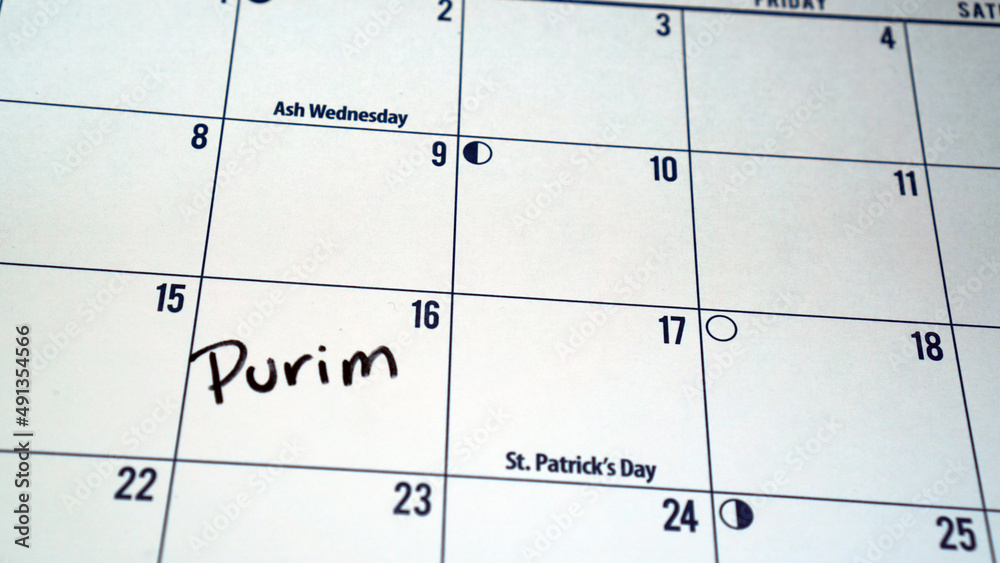 FRIDAY
SAT
2
3
4
Ash Wednesday
8
9
10
11
15
16
17
18
Purim
St. Patrick's Day
22
23
24
25
Adobe Stock | #491354566